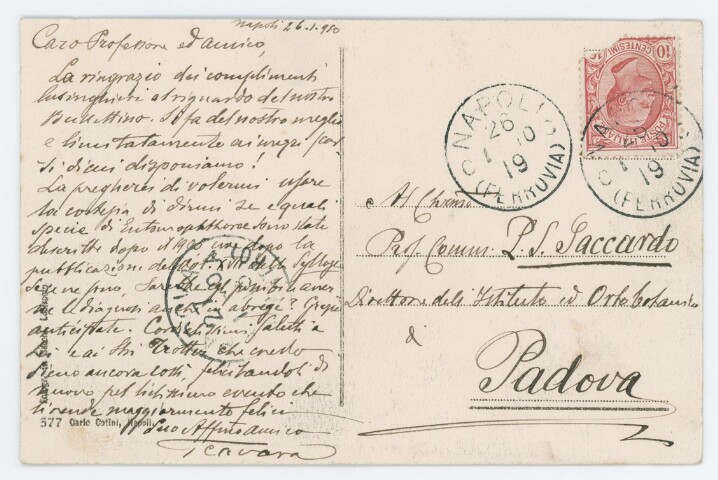 Napoli 26.1.910
Caro Professore ed amico,
La ringrazio dei complimenti
lusinghieri al riguardo del nostro
Bullettino. Si fa del nostro meglio
e limitatamente ai mezzi scar-
si di cui disponiamo!
La pregherei di volermi usare
la cortesia di dirmi se e quali
specie di Entomophthoree sono state
descritte dopo il 1900 ossia dopo la
pubblicazione del Vol. XVI della Sylloge
se ne può, sarebbe possibile avere
le diagnosi anche in abrégé? Grazie
anticipate. Cordialissimi saluti a
Lei e ai Sri Trotter che credo
siano ancora costì, felicitandoli di
nuovo pel lietissimo evento che
li rende maggiormente felici
Suo Affmo amico
F. Cavara
577 Carlo Cotini, Napoli.
10
CENTESIMI
POSTE ITALIANE
NAPOLI
26
1 10
19
(FERROVIA)
NAPOLI
1 10
19
(FERROVIA)
Al Chmo
Prof. Comm. P. A. Saccardo
Direttore dell Istituto ed Orto botanico
di
Padova